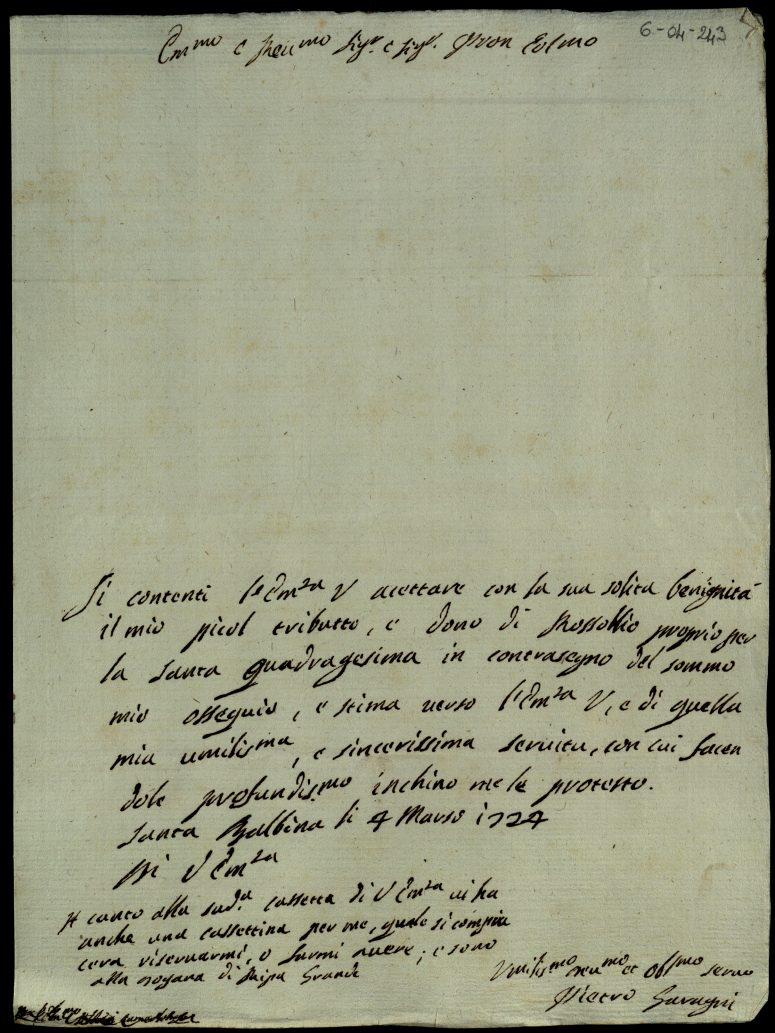 6-04-243
Em.mo e Reu.mo Sig.r e Sig.r Pron Colmo
Si contenti l'Em.za V acettare con la sua solita benignità
il mio picol tributto, e dono di Rossollio proprio per
la santa quadragesima in contrasegno del sommo
mio osseguio, e stima verso l'Em.za V, e di quella
mia umilis.ma, e sincerissima seruitu, con cui facen
dole profundis.mo inchino me le protesto.
Santa Balbina li 4 Marso 1724
Di V Em.za
A canto alla sud.a cassetta di V Em.za vi ha
anche una cassettina per me, quale si compia
cera riseruarmi, o farmi auere; e sono
alla dogana di Ripa Grande
Umilis.mo deu.mo et obl.mo seruo
Pietro